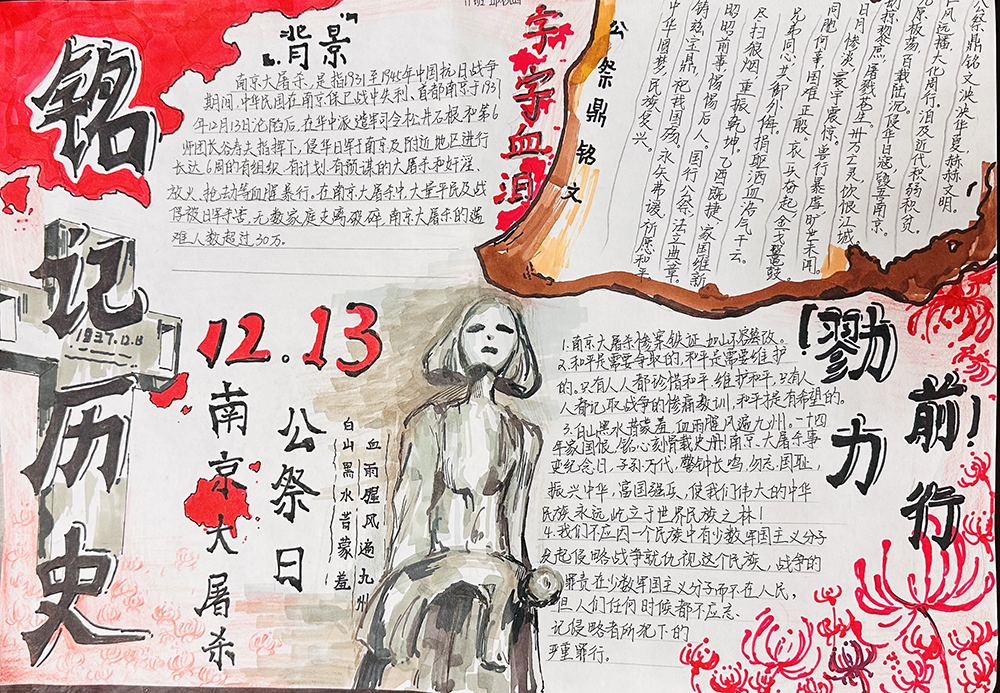 铭记历史
1937.12.13
『背景』
南京大屠杀,是指1931至1945年中国抗日战争
期间,中华民国在南京保卫战中失利、首都南京于1931
年12月13日沦陷后,在华中派遣军司令松井石根和第6
师团长谷寿夫指挥下,侵华日军于南京及附近地区进行
长达6周的有组织、有计划、有预谋的大屠杀和奸淫、
放火、抢劫等血腥暴行。在南京大屠杀中,大量平民及战
俘被日军杀害,无数家庭支离破碎,南京大屠杀的遇
难人数超过30万。
字字血泪
公祭鼎铭文
公祭鼎铭文泱泱华夏,赫赫文明。
仁风远播,大化周行。洎及近代,积弱积贫。
九原板荡,百载陆沉。侵华日寇,毁吾南京。
劫掠黎庶,屠戮苍生。卅万亡灵,饮恨江城。
日月惨淡,寰宇震惊。兽行暴虐,旷世未闻。
同胞何辜,国难正殷。哀兵奋起,金戈鼍鼓。
兄弟同心,共御外侮。捐躯洒血,浩气干云。
尽扫狼烟,重振乾坤。乙酉既捷,家国维新。
昭昭前事,惕惕后人。国行公祭,法立典章。
铸兹宝鼎,祀我国殇。永矢弗谖,祈愿和平。
中华圆梦,民族复兴。
12.13
南京大屠杀
公祭日
白山黑水昔蒙羞
血雨腥风遍九州
1.南京大屠杀惨案铁证如山不容篡改。
2.和平是需要争取的,和平是需要维护
的。只有人人都珍惜和平,维护和平,只有人
人都记取战争的惨痛教训,和平才是有希望的。
3.白山黑水昔蒙羞,血雨腥风遍九州。一十四
年家国恨,铭心刻骨载史册!南京大屠杀事
变纪念日,子孙万代,警钟长鸣,勿忘国耻,
振兴中华,富国强兵,使我们伟大的中华
民族永远屹立于世界民族之林!
4.我们不应因一个民族中有少数军国主义分子
发起侵略战争就仇视这个民族,战争的
罪责在少数军国主义分子而不在人民,
但人们任何时候都不应忘
记侵略者所犯下的
严重罪行。
戮力
前行!